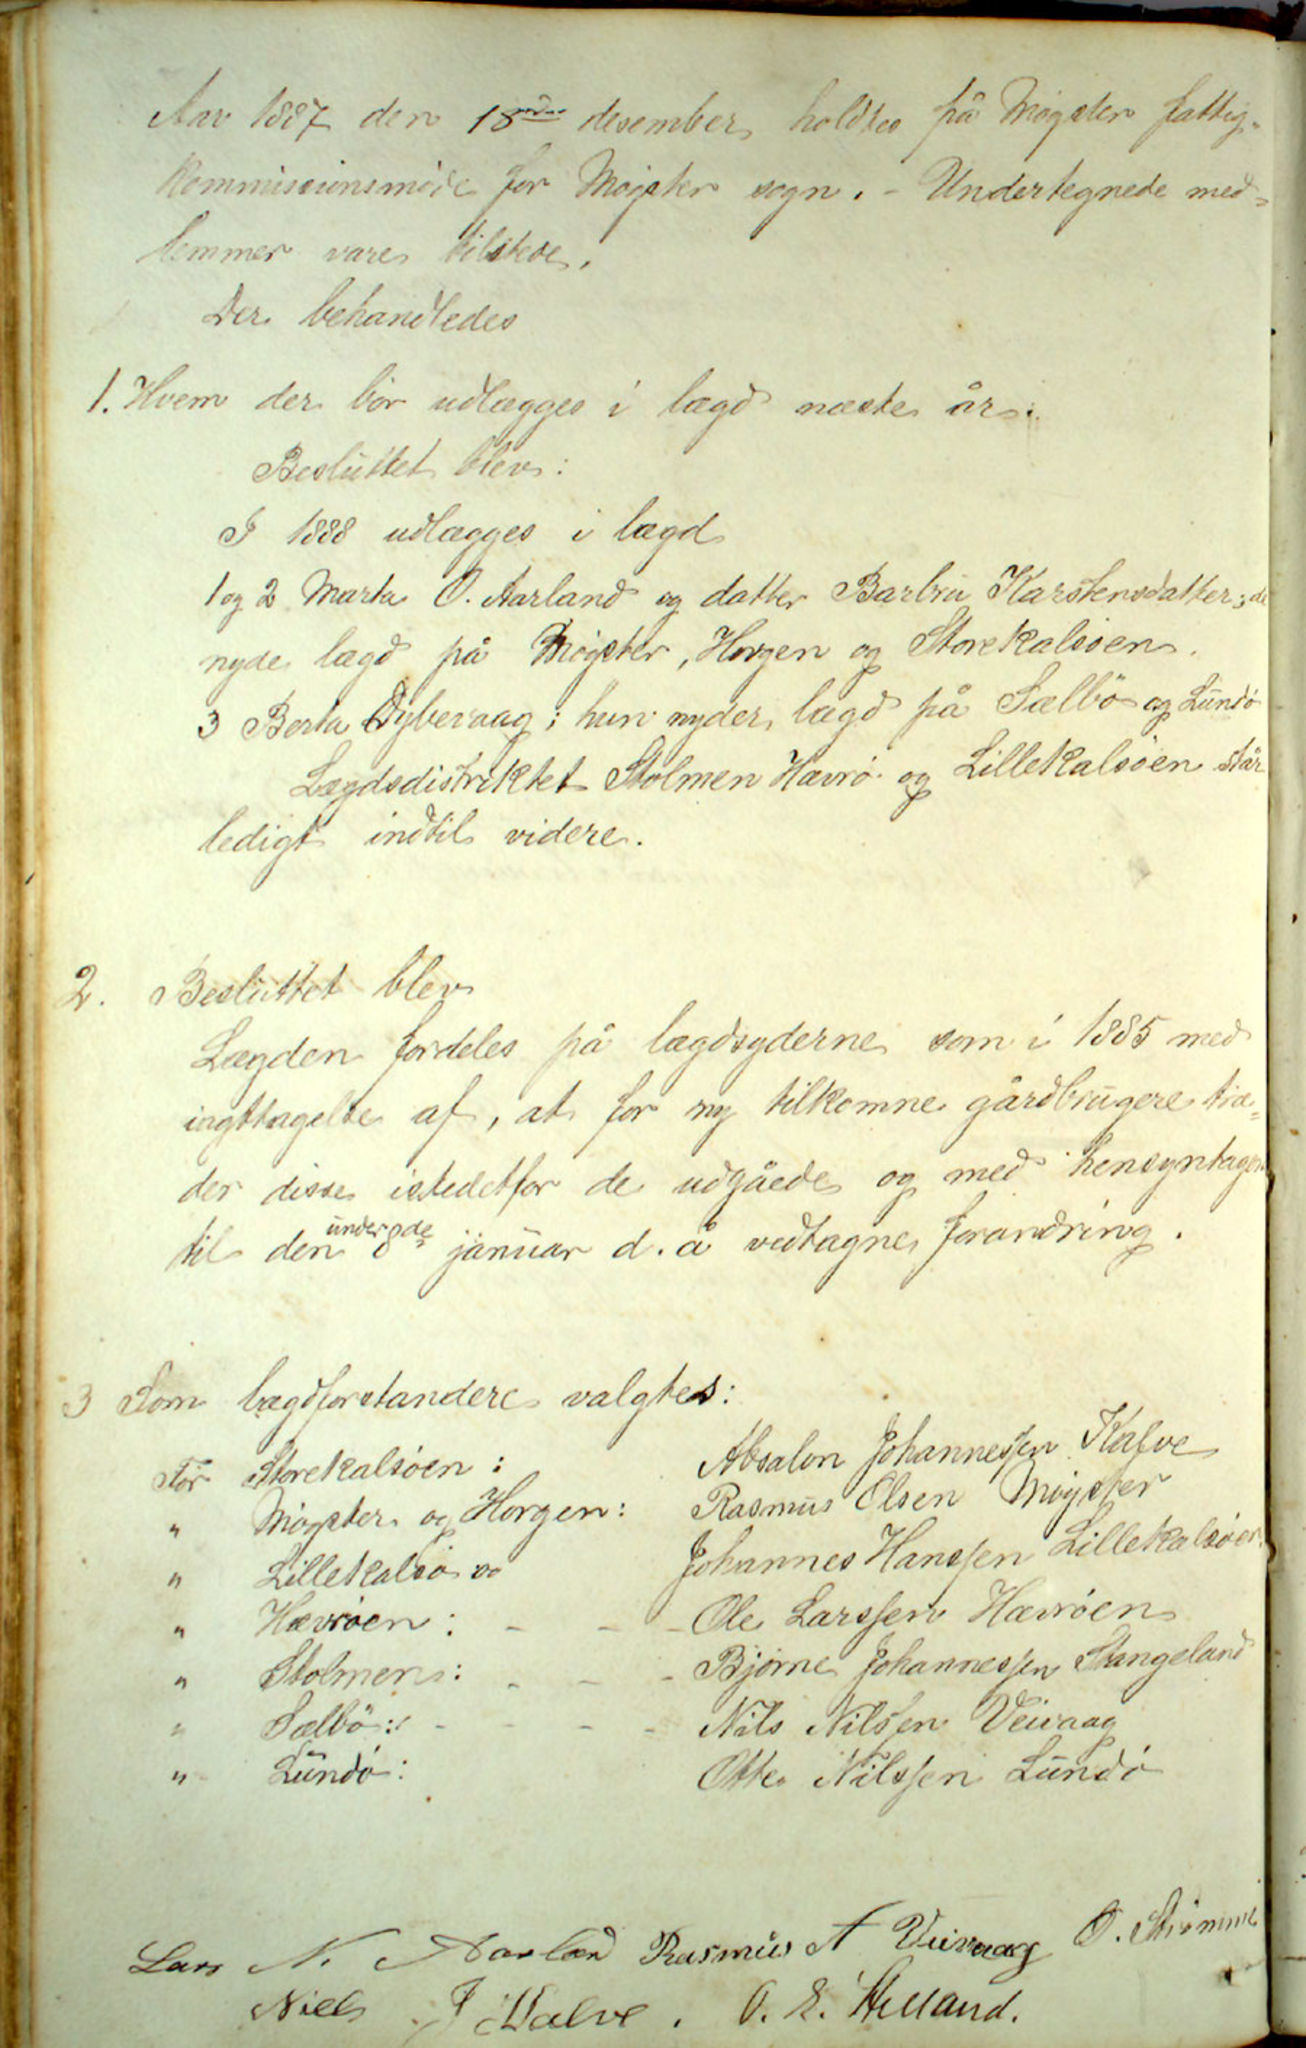 Aar 1887 den 18de desember holdtes på Møgster fattig-
kommissionsmøde for Møgster sogn. - Undertegnede med-
lemmer vare tilstede.
Der behandledes
1. Hvem der bør udlægges i lægd næste år.
Besluttet blev:
I 1888 udlægges i lægd
1 og 2 Marta O. Aarland og datter Barbru Karstensdatter; de
nyde lægd på Møgster, Horgen og Storekalsøen.
3 Berta Dybevaag; hun nyder lægd på Sælbö og Lundø
Lægdsdistriktet Stolmen Hævrø og Lillekalsøen står
ledigt indtil videre.
2. Besluttet blev
Lægden fordeles på lægdsyderne som i 1885 med
ingttagelse af, at for ny tilkomne gårdbrugere træ-
der disse istedetfor de udgåede og med hensyntagen
til den under 8de januar d. å vedtagne forandring.
3 Som lægdforstandere valgtes:
For Storekalsøen: Absalon Johannessen Kalve
" Møgster og Horgen: Rasmus Olsen Møgster
" Lillekalsø Johannes Hanssen Lillekalsøen
" Hævrøen: - - - Ole Larssen Hævrøen
" Stolmen: - - - Bjørne Johannessen Stangeland
" Sælbö: - - - - Nils Nilssen Veivaag
" Lundø: Otte Nilssen Lundø
Lars N. Aarland Rasmus A Veivaag O. Strömme
Niels J Kalve. O. E. Helland.